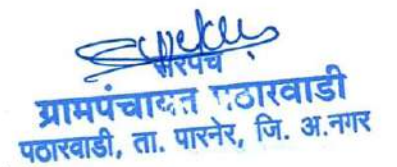 सरपंच
ग्रामपंचायत पठारवाडी
पठारवाडी, ता. पारनेर, जि. अ.नगर